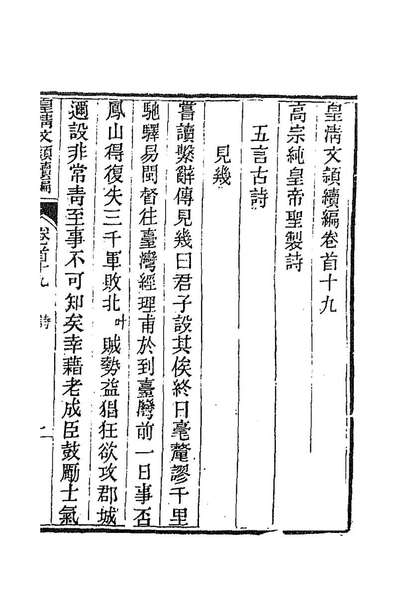 皇清文頴續編卷首十九
高宗純皇帝聖製詩
五言古詩
見幾
嘗讀繫辭傳見幾曰君子設其俟終日毫釐謬千里
馳驛易閩督往臺灣經理甫於到臺灣前一日事否
鳳山得復失三千軍敗北叶賊勢益猖狂欲攻郡城
邇設非常青至事不可知矣幸藉老成臣鼓勵士氣
皇清文頴續編 卷首十九 詩 一